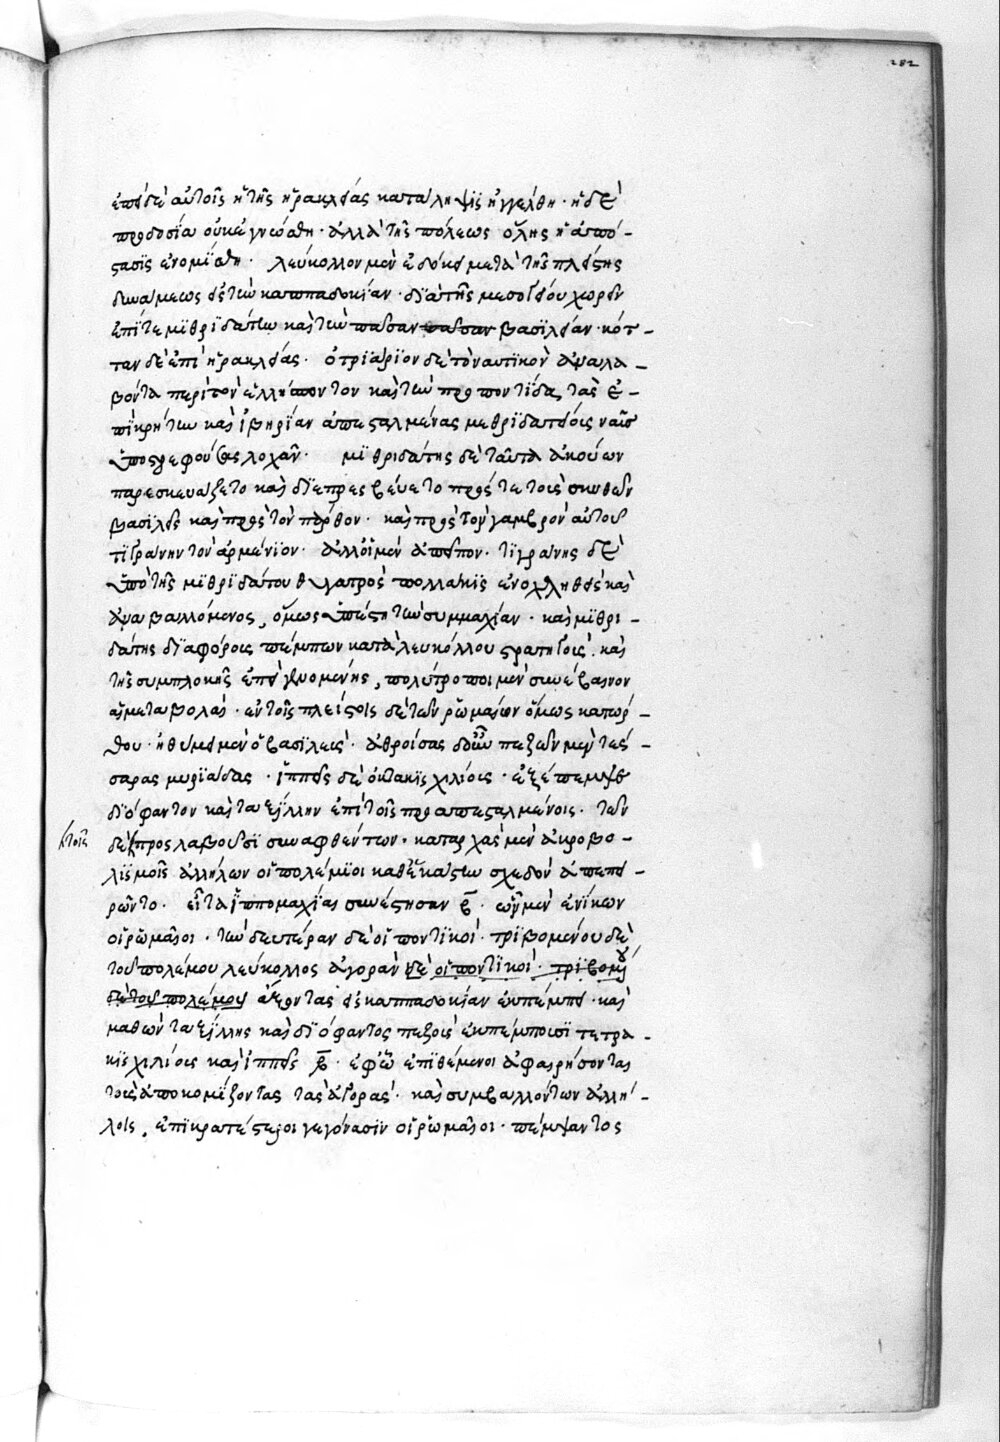 282
ἐπεὶ δὲ αὐτοῖς ἡ τῆς ἡρακλείας κατάληψις ἠγγέλθη · ἡ δὲ
προδοσία οὐκ ἐγνώσθη · ἀλλὰ τῆς πόλεως ὅλης ἡ ἀπό-
στασις ἐνομίσθη · λεύκολλον μὲν ἐδόκει μετὰ τῆς πλείστης
δυνάμεως εἰς τὴν καππαδοκίαν · διὰ τῆς μεσογείου χωρεῖν
ἐπί τε μιθριδάτην καὶ τὴν πᾶσαν πᾶσαν βασιλείαν · κότ-
ταν δὲ ἐπὶ ἡρακλείας · ὁ τριάριον δὲ τὸ ναυτικὸν ἀναλα
βόντα περὶ τὸν ἑλλήσποντον καὶ τὴν προποντίδα, τὰς ἐ-
πὶ κρήτην καὶ ἰβηρίαν ἀπεσταλμένας μιθριδατείοις ναῦς
ὑποστρεφούσας λοχᾶν · μιθριδάτης δὲ ταῦτα ἀκούων
παρεσκευάζετο καὶ διεπρεσβεύετο πρός τε τοὺς σκυθῶν
βασιλεῖς καὶ πρὸς τὸν πάρθον · καὶ πρὸς τὸν γαμβρὸν αὐτοῦ
τιγράνην τὸν ἀρμένιον · ἀλλ' οἱ μὲν ἀπεῖπον · τιγράνης δὲ
ὑπὸ τῆς μιθριδάτου θυγατρὸς πολλάκις ἐνοχληθεὶς καὶ
ἀναβαλλόμενος, ὅμως ὑπέστη τὴν συμμαχίαν · καὶ μιθρι-
δάτης διαφόρους πέμπων κατὰ λευκόλλου στρατηγούς · καὶ
τῆς συμπλοκῆς ἐπιγινομένης, πολύτροποι μὲν συνέβαινον
αἱ μεταβολαί · ἐν τοῖς πλείστοις δὲ τῶν ῥωμαίων ὅμως κατώρ-
θου · ἠθύμει μὲν ὁ βασιλεύς · ἀθροίσας οὖν πεζῶν μὲν τεσ-
σαρας μυριάδας · ἱππεῖς δὲ ὀκτακισχιλίους · ἐξέπεμψε
διόφαντον καὶ ταξίλλην ἐπὶ τοῖς προαπεσταλμένοις · τῶν
τοῖς
δὲ προσλαβοῦσι συναφθέντων · κατ' ἀρχὰς μὲν ἀκροβο-
λισμοῖς ἀλλήλων οἱ πολέμιοι καθ' ἑκάστην σχεδὸν ἀπεπει-
ρῶντο · εἶτα ἱππομαχίας συνέστησαν β · ὧν μὲν ἐνίκων
οἱ ῥωμαῖοι · τὴν δευτέραν δὲ οἱ ποντικοί · τριβομένου δὲ
τοῦ πολέμου λεύκολλος ἀγορὰν δὲ οἱ ποντικοί · τριβομένου
δὲ τοῦ πολέμου ἄξοντας εἰς καππαδοκίαν ἐκπέμπει · καὶ
μαθὼν ταξίλλης καὶ διόφαντος πεζοὺς ἐκπέμπουσι τετρα-
κισχιλίους καὶ ἱππεῖς β · ἐφ' ᾧ ἐπιθέμενοι ἀφαιρήσονται
τοὺς ἀποκομίζοντας τὰς ἀγοράς · καὶ συμβαλλόντων ἀλλή-
λοις, ἐπικρατέστεροι γεγόνασιν οἱ ῥωμαῖοι · πέμψαντος